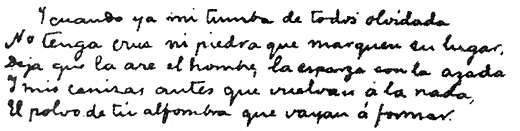 Y cuando ya mi tumba de todos olvidada
No tenga crus ni piedra que marquen su lugar,
Deja que la are el hombre, la esparza con la azada
Y mis cenizas antes que vuelvan á la nada,
El polvo de tu alfombra que vayan á formar.